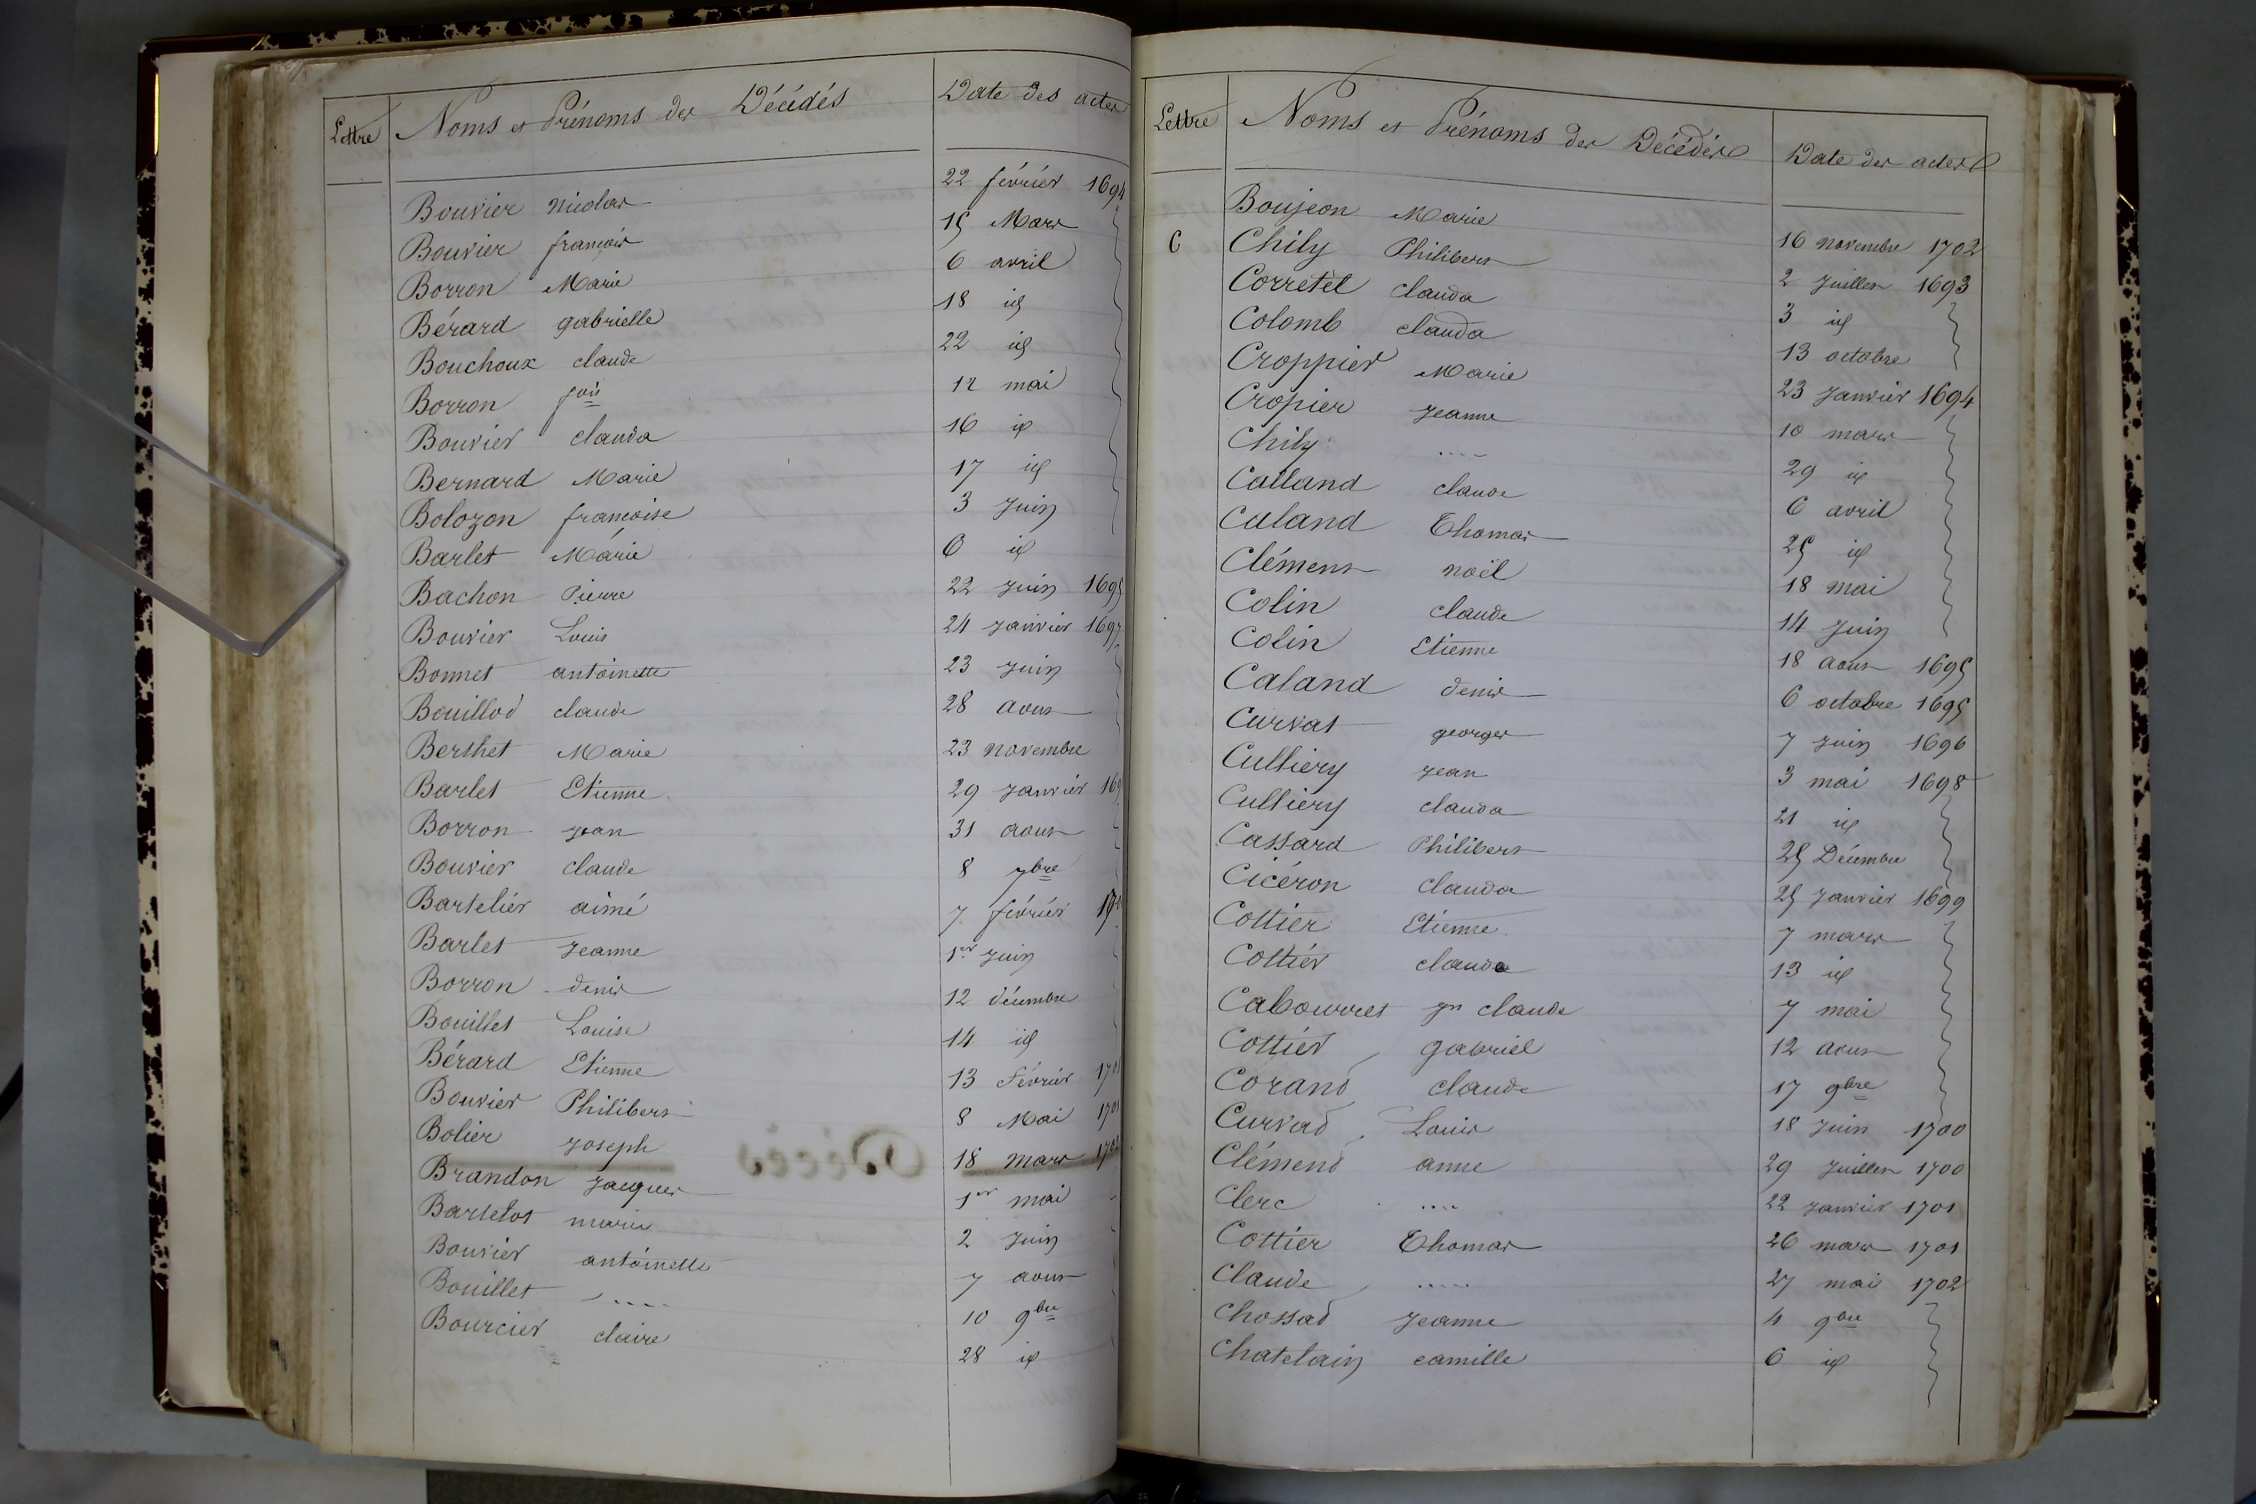 Lettre Noms et Prénoms des Décédés Date des actes
Bouvier nicolas 22 février 1694
Bouvier françois 15 Mars
Borron Marie 6 avril
Bérard gabrielle 18 id
Bouchoux claude 22 id
Borron 12 mai
Bouvier clauda 16 id
Bernard Marie 17 id
Bolozon françoise 3 Juin
Barlet Marie 6 id
Bachon Pierre 22 Juin 1695
Bouvier Louis 24 Janvier 1697
Bonnet antoinette 23 Juin
Bouillod claude 28 aout
Berthet Marie 23 novembre
Barlet Etienne 29 Janvier 169
Borron jean 31 aout
Bouvier claude 8 7bre
Bartelier aimé 7 février
Barlet Jeanne 1er Juin
Borron denis 12 décembre
Bouillet Louise 14 id
Bérard Etienne 13 Février 1701
Bouvier Philibert 8 Mai 1701
Bolier Joseph 18 mars 1702
Brandon Jacques 1er mai
Bartelot marie 2 Juin
Bouvier antoinette 7 aout
Bouillet .... 10 9bre
Bourcier claire 28 id
Lettre Noms et Prénoms des Décédés Date des actes
Boujeon Marie 16 novembre 1702
C Chily Philibert 2 Juillet 1693
Corretel clauda 3 id
Colomb clauda 13 octobre
Croppier Marie 23 Janvier 1694
Cropier Jeanne 10 mars
Chily .... 29 id
Calland claude 6 avril
Caland Thomas 25 id
Clément noël 18 mai
Colin claude 14 Juin
Colin Etienne 18 aout 1695
Caland denis 6 octobre 1695
Curvat georges 7 Juin 1696
Culliery jean 3 mai 1698
Culliery clauda 21 id
Cassard Philibert 25 Décembre
Cicéron clauda 25 Janvier 1699
Cottier Etienne 7 mars
Cottier clauda 13 id
Cabourret jn claude 7 mai
Cottier gabriel 12 aout
Corand claude 17 9bre
Curvad Louis 18 Juin 1700
Clémend anne 29 Juillet 1700
Clerc .... 22 Janvier 1701
Cottier Thomas 26 mars 1701
Claude ..... 27 mai 1702
Chossad Jeanne 4 9bre
Chatelain camille 6 id